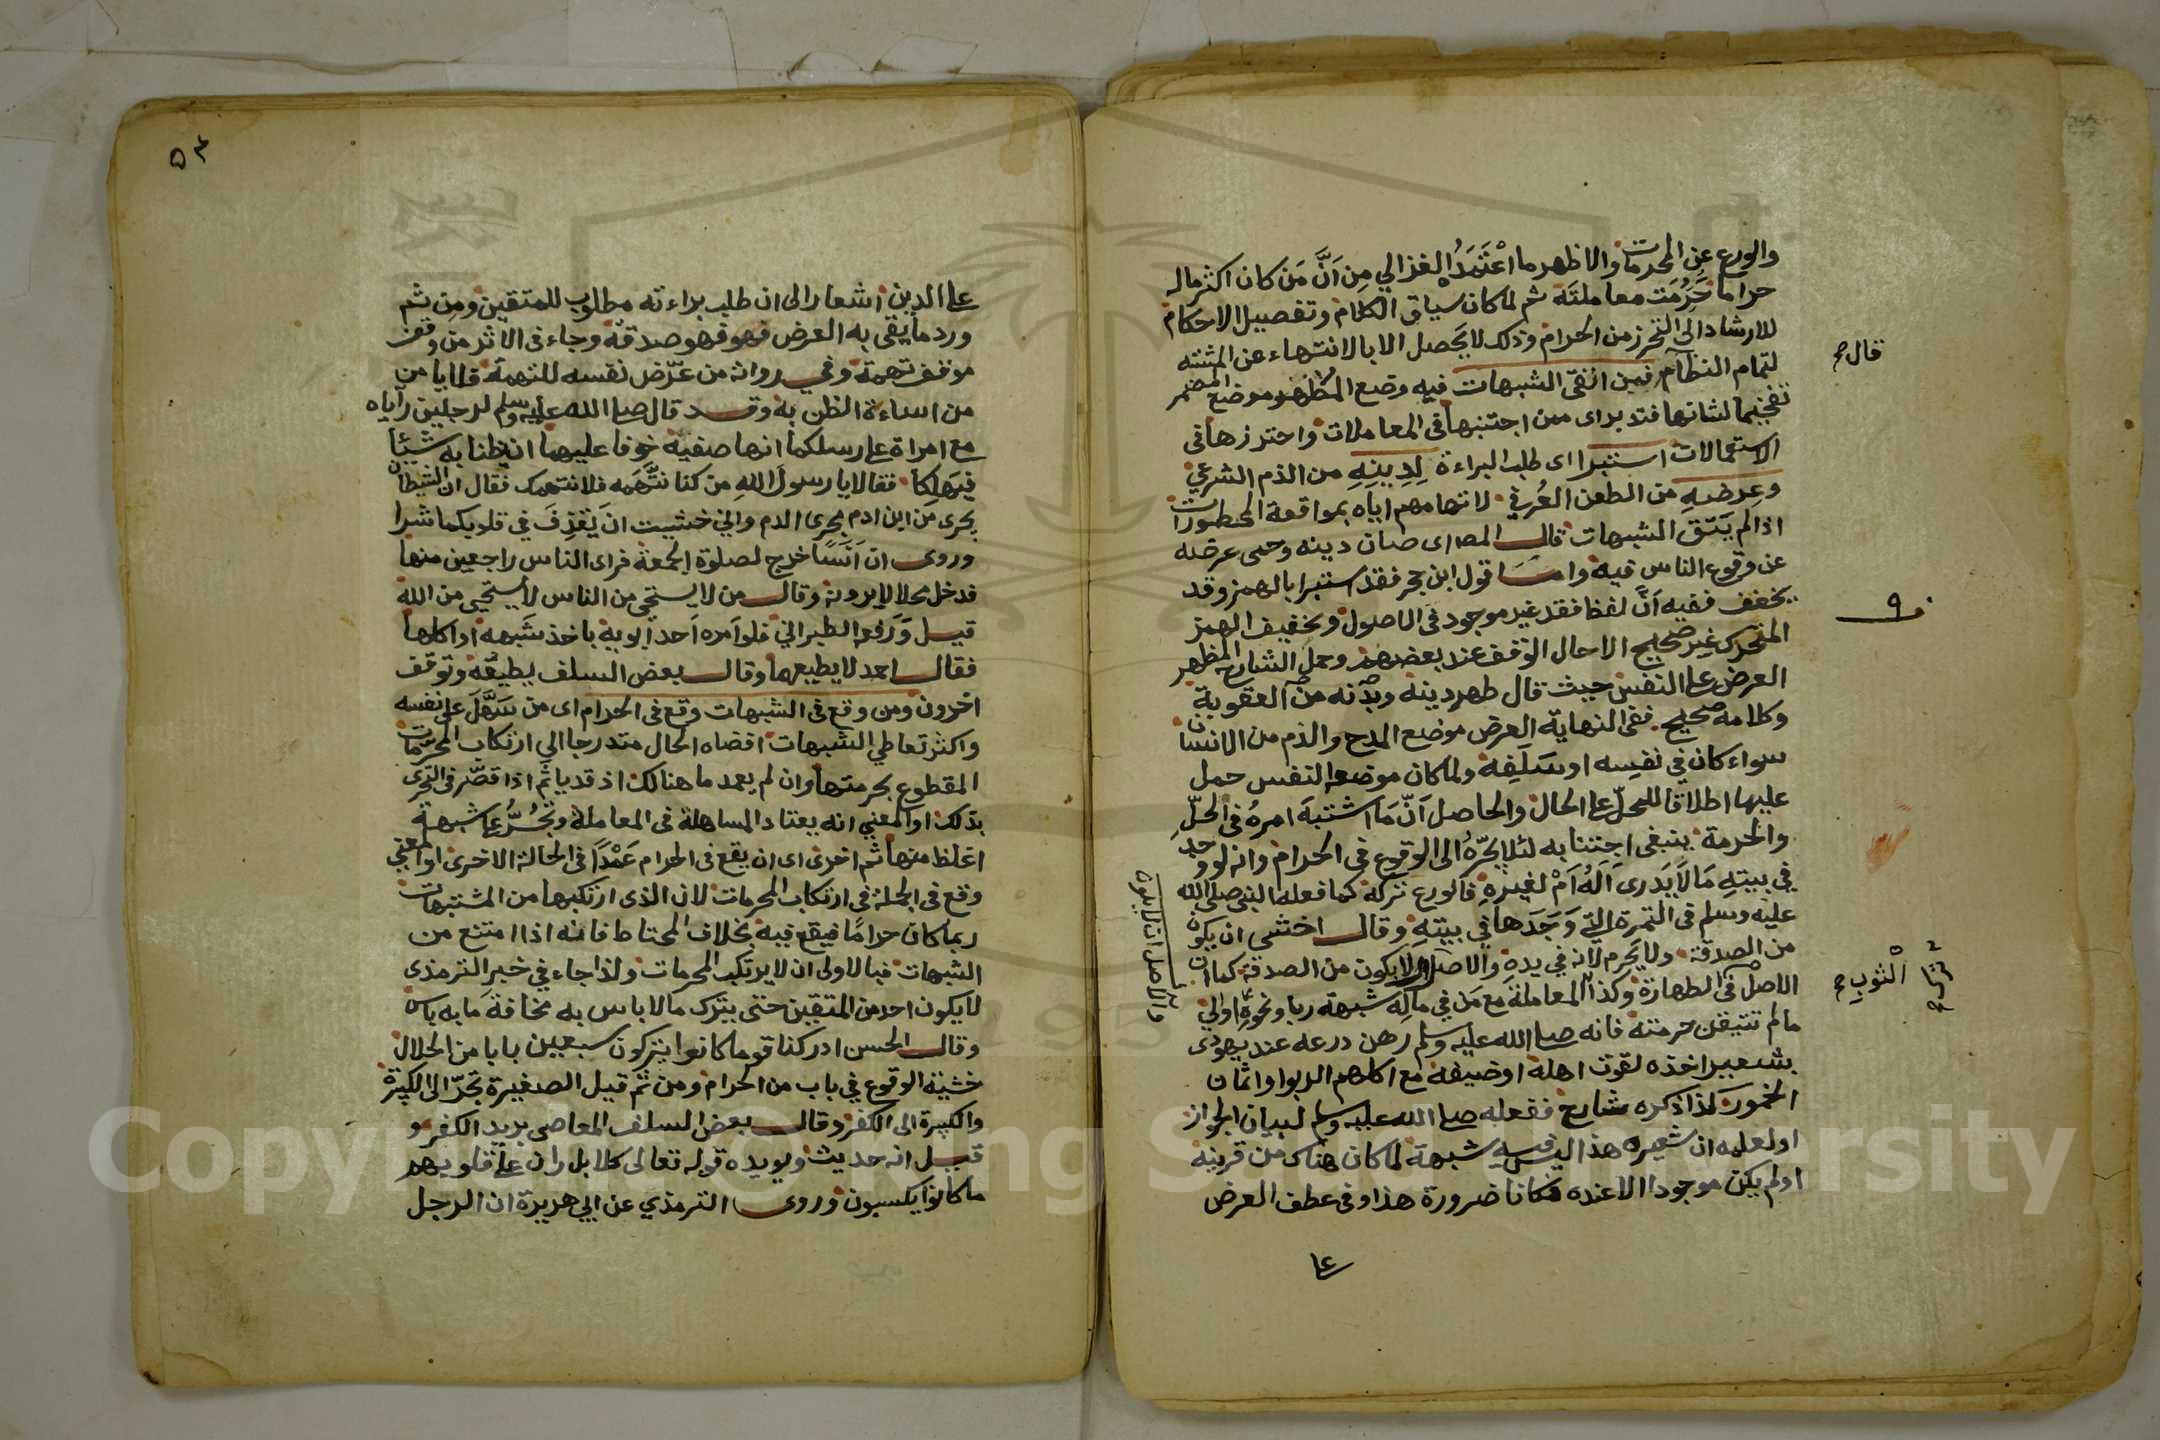 والورع عن المحرمات والاظهر ما اعْتَمَدَهُ الغزالي مِن اَنَّ مَن كان اكثر ماله
حراما حَرُمَت معاملتَه ثم لما كان سياق الكلام وتفصيل الاحكام
للارشاد الى التحرز من الحرام وذلك لا يحصل الا بالانتهاء عن المشتبه
قال صح
لتمام النظام فمن اتقى الشبهات فيه وضع المُظْهَر موضع المضمر
تفخيما لشانها فتد براى ممن اجتنبها فى المعاملات واحترز ها فى
الاستعمالات استبرا اى طلب البراءة لِدِينِهِ من الذم الشرعي
وعِرضهِ من الطعن العُرفي لاتهامهم اياه بمواقعة المحظورات
اذا لم يَتَّق الشبهات قال المص اى صان دينه وحمى عرضه
عن وقوع الناس فيه واما قول ابن حجر فقد استبرا بالهمز وقد
يخفف ففيه اَنَّ لفظ فقد غير موجود فى الاصول وتخفيف الهمز
المتحرك غير صحيح الا حال الوقف عند بعضهم وحمل الشارح المظهر
العرض على النفس حيث قال طهر دينه وبدنه من العقوبة
وكلامه صحيح ففى النهاية العرض موضع المدح والذم من الانسان
سواء كان في نفسِه او سَلَفِه ولما كان موضعه النفس حمل
عليها اطلاقا للمحلّ على الحال والحاصل اَنّ مَا اشتبهَ امرهُ فى الحلِّ
والحرمة ينبغى اجتنابه لئلا يجرّهُ الى الوقوع فى الحرام وانه لو وجد
في بيتهِ مَا لَا يَدرى اَلَهُ اَمْ لغيرهِ فالورع تركه كما فعله النبي صلى الله
عليه وسلم فى التمرة التي وَجَدَها في بيتهِ وقال اخشى ان يكون
من الصدقة ولا يَحرم لانه في يدهِ والاصل ان لا يكون من الصدقة كما ان
والاصل ان لا يكون
الثوب صح
الاصل فى الطهارة وكذا المعاملة مع مَن في مالِه شبهة ربا ونحوه اولى
ما لم تتيقن حرمته فانه صلى الله عليه وسلم رهن درعه عند يهودى
بشعير اخذه لقوت اهله او ضيفه مع اكلهم الربوا واثمان
الخمور كذا ذكره شارح ففعله صلى الله عليه وسلم لبيان الجواز
او لعلمه ان شعيره هذا ليس فيه شبهة لما كان هناك من قرينة
او لم يكن موجودا الا عنده فكانا ضرورة هذا وفى عطف العرض
على
٥٣
على الدين اشعار الى ان طلب براءته مطلوب للمتقين ومِن ثم
ورد ما يقى به العرض فهو صدقة وجاء فى الاثر من وقف
موقف تهمة وفي رواية من عَرَّض نفسه للتهمة فلا يا من
من اساءة الظن به وقد قال صلى الله عليه وسلم لرجلين رآياه
مع امراة على رسلكما انها صفية خوفا عليهما ان يظنا به شيئا
فيهلكا فقالا يا رسولَ اللهِ من كنا نتّهمه فلا نتهمك فقال ان الشيطان
يجرى من ابن ادم مجرى الدم واني خشيت ان يَقذِفَ في قلوبكما شرا
وروى ان اَنَسًا خرج لصلوة الجمعة فراى الناس راجعين منها
فدخل محلا لا يرونه وقال من لا يستحي من الناس لا يستحيى من الله
قيل وَرَفَعه الطبراني فلو اَمره اَحد ابويه باخذ شبهه او اكلها
فقال احمد لا يطيعهما وقال بعض السلف يطيعُه وتوقف
اخرون ومن وقع فى الشبهات وقع فى الحرام اى من سَهَّلَ على نفسه
واكثر تعاطي الشبهات افضاه الحال متدرجا الى ارتكاب المحرمات
المقطوع بحرمتها وان لم يعمد ما هنالك اذ قد ياثم اذا قصّر فى التحرى
بذلك او المعنى انه يعتاد المساهلة فى المعاملة وتجُرُّ على شبهة
اغلظ منها ثم اخرى اى ان يقع فى الحرام عَمْدًا فى الحالة الاخرى او المعنى
وقع فى الجملة فى ارتكاب المحرمات لان الذى ارتكبها من المشتبهات
ربما كان حرامًا فيقع فيه بخلاف المحتاط فانه اذا امتنع من
الشبهات فبالاولى ان لا يرتكب المحرمات ولذا جاء في خبر الترمذى
لا يكون احد من المتقين حتى يترك ما لا باس به مخافة مَا به باس
وقال الحسن ادركنا قوما كانوا يتركون سبعين بابا من الحلال
خشية الوقوع في باب من الحرام ومن ثم قيل الصغيرة تجرّ الى الكبيرة
والكبيرة الى الكفر وقال بعض السلف المعاصى بريد الكفر و
قيل انه حديث ويويده قوله تعالى كلا بل ران على قلوبهم
ما كانوا يكسبون وروى الترمذي عن ابي هريرة ان الرجل
Copyright © King Saud University
1957